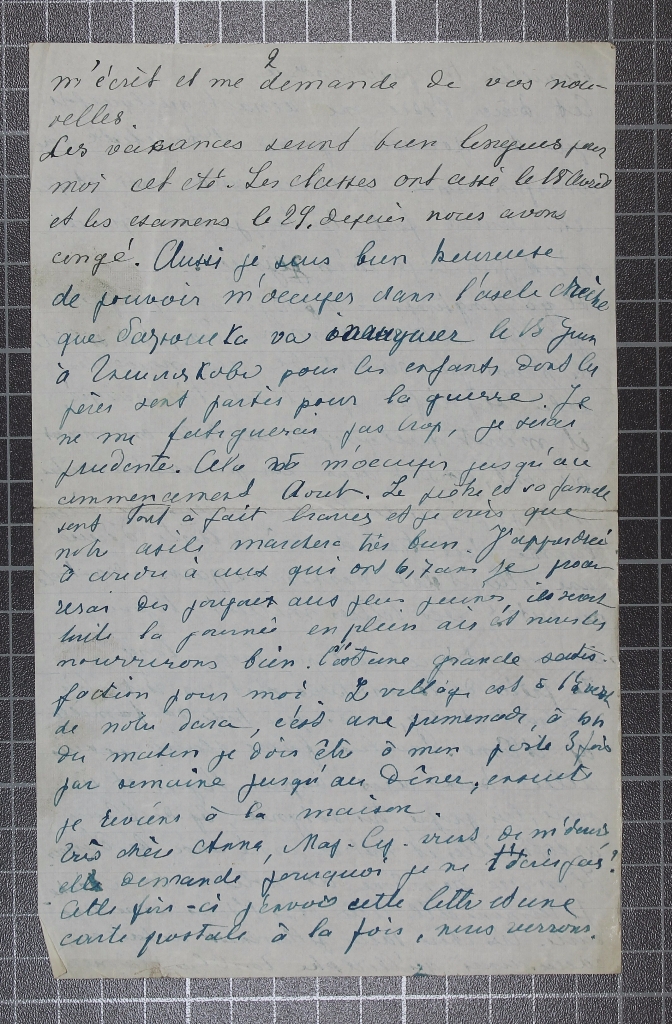 2
m'écrit et me demande de vos nou-
velles.
Les vacances seront bien longues pour
moi cet été. Les classes ont cessé le 18 Avril
et les examens le 29. depuis nous avons
congé. Aussi je suis bien heureuse
de pouvoir m'occuper dans l'asile crèche
que va le 15 Juin
à pour les enfants dont les
pères sont partis pour la guerre. Je
ne me fatiguerai pas trop, je serai
prudente. Cela m'occuper jusqu'au
commencement Aout. Le prêtre et sa famille
sont tout à fait braves et je crois que
notre asile marchera très bien. J'apprendrai
à coudre à ceux qui ont 6, 7 ans je
des joujoux aux plus jeunes, ils seront
toute la journée en plein air et nous les
nourrirons bien. C'est une grande satis-
faction pour moi. L village est à 1½ verst
de notre dara, c'est une promenade, à
du matin je dois être à mon poste 3 fois
par semaine jusqu'au dîner, ensuite
je reviens à la maison.
Très chère Anna, vient de m'écrire,
elle demande pourquoi je ne t'écris pas?
Cette fois-ci j'envoie cette lettre et une
carte postale à la fois, nous verrons.